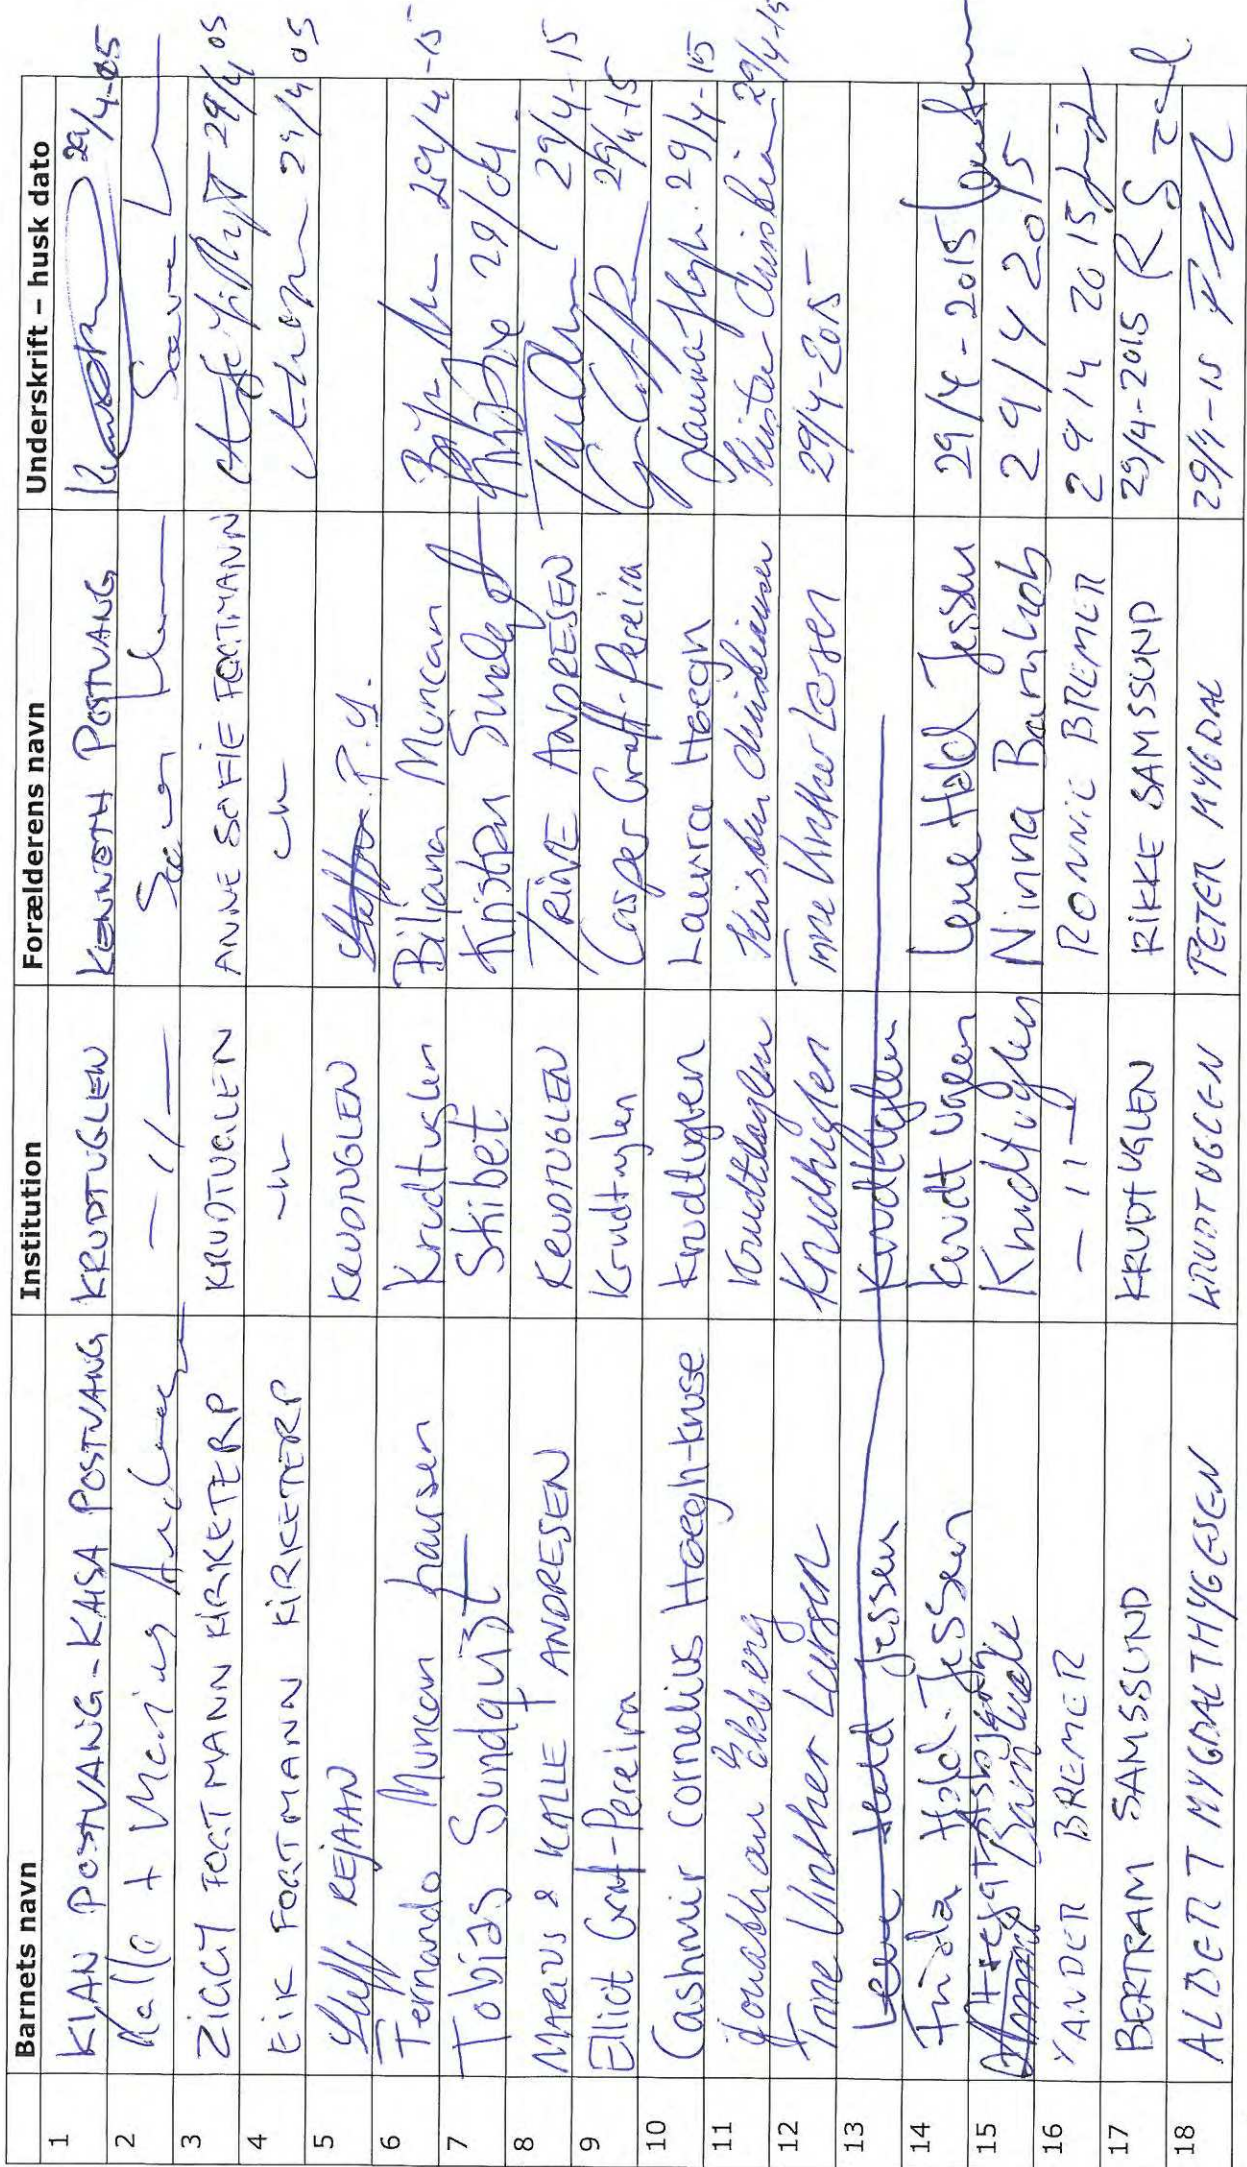 Barnets navn Institution Forælderens navn Underskrift – husk dato
1 KIAN POSTVANG-KAISA POSTVANG KRUDTUGLEN KENNETH POSTVANG 29/4-05
2 Kalle + Marius -11-
3 ZIGGY FOGTMANN KIRKETERP KRUDTUGLEN ANNE SOFIE FOGTMANN 29/4 05
4 EIK FOGTMANN KIRKETERP -11- 29/4 05
5 REJAAN KRUDTUGLEN
6 Fernando Muncan hansen Krudtuglen Biljana Muncan 29/4-15
7 Tobias Sundquist Skibet Kristian 29/04
8 MARIUS & KALLE ANDRESEN KRUDTUGLEN TRINE ANDRESEN 29/4-15
9 Elliot Graff-Pereira Krudtuglen Casper Graff-Pereira 29/4-15
10 Cashmir Cornelius Høegh-Kruse Krudtuglen Laura Høegh 29/4-15
11 Jonathan Ekberg Krudtuglen Kirsten Christiansen 29/4-15
12 Tone Vinther Larsen Krudtuglen 29/4-2015
13 Lene Hald Jessen Krudtuglen
14 Frida Hald-Jessen Krudtuglen Lene Hald Jessen 29/4-2015
15 Krudtuglen Ninna 29/4 2015
16 YANDER BREMER -11- RONNIE BREMER 29/4 2015
17 BERTRAM SAMSSUND KRUDTUGLEN RIKKE SAMSSUND 29/4-2015
18 ALBERT MYGDAL THYGESEN KRUDTUGLEN PETER MYGDAL 29/4-15